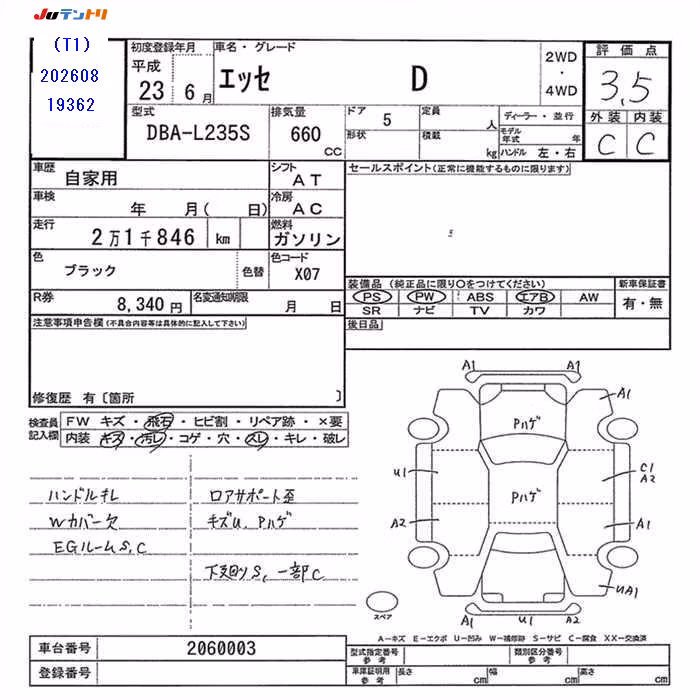 JUテントリ
(T1)
202608
19362
初度登録年月
平成
23 6月
車名・グレード
エッセ D
2WD
・
4WD
評価点
3.5
外装 内装
C C
型式
DBA-L235S
排気量
660
cc
ドア 5
形状
定員 人
積載 kg
ディーラー・並行
モデル年式 年
ハンドル 左・右
車歴
自家用
シフト
AT
車検
年 月( 日)
冷房
AC
走行
2万1千846 km
燃料
ガソリン
色
ブラック
色替
色コード
X07
R券
8,340円
名変通知期限
月 日
セールスポイント(正常に機能するものに限ります)
装備品(純正品に限り○をつけてください)
PS PW ABS エアB AW
SR ナビ TV カワ
新車保証書
有・無
後日品
注意事項申告欄(不具合内容等は具体的に記入して下さい)
修復歴 有〔箇所 〕
検査員
記入欄
FW キズ・飛石・ヒビ割・リペア跡・×要
内装・キズ・汚レ・コゲ・穴・スレ・キレ・破レ
ハンドルキレ
Wカバー欠
EGルームS,C
ロアサポート歪
キズU、Pハゲ
下回りS、一部C
A1 A1
A1
Pハゲ
U1
C1
A2
Pハゲ
A2
A1
UA1
A1 U1 A2
スペア
A-キズ E-エクボ U-凹み W-補修跡 S-サビ C-腐食 XX-交換済
車台番号
2060003
登録番号
型式指定番号
参考
類別区分番号
参考
車庫証明用
参考
長さ cm
幅 cm
高さ cm